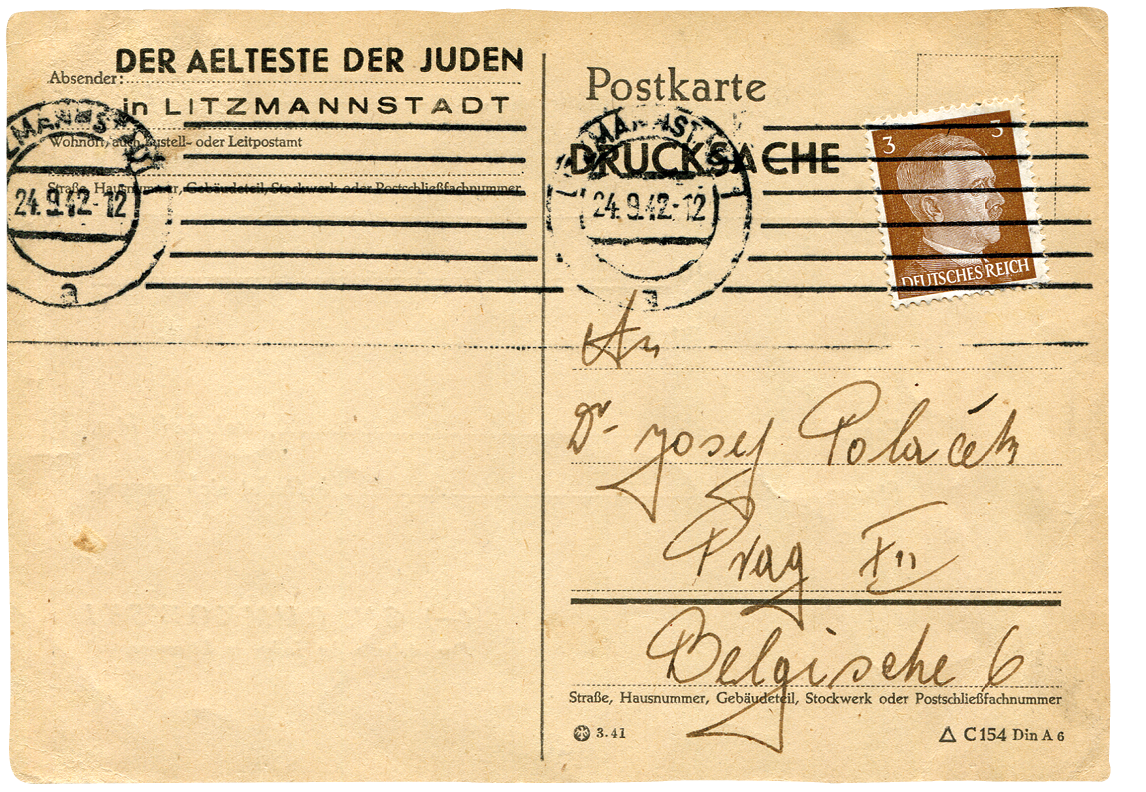 DER AELTESTE DER JUDEN
Absender:
in LITZMANNSTADT
Wohnort, auch Zustell- oder Leitpostamt
Straße, Hausnummer, Gebäudeteil, Stockwerk oder Postschließfachnummer
24.9.42-12
a
Postkarte
DRUCKSACHE
24.9.42-12
a
3 3
DEUTSCHES REICH
An
Dr Josef Polaćek
Prag XII
Belgische 6
Straße, Hausnummer, Gebäudeteil, Stockwerk oder Postschließfachnummer
3.41
C 154 Din A 6